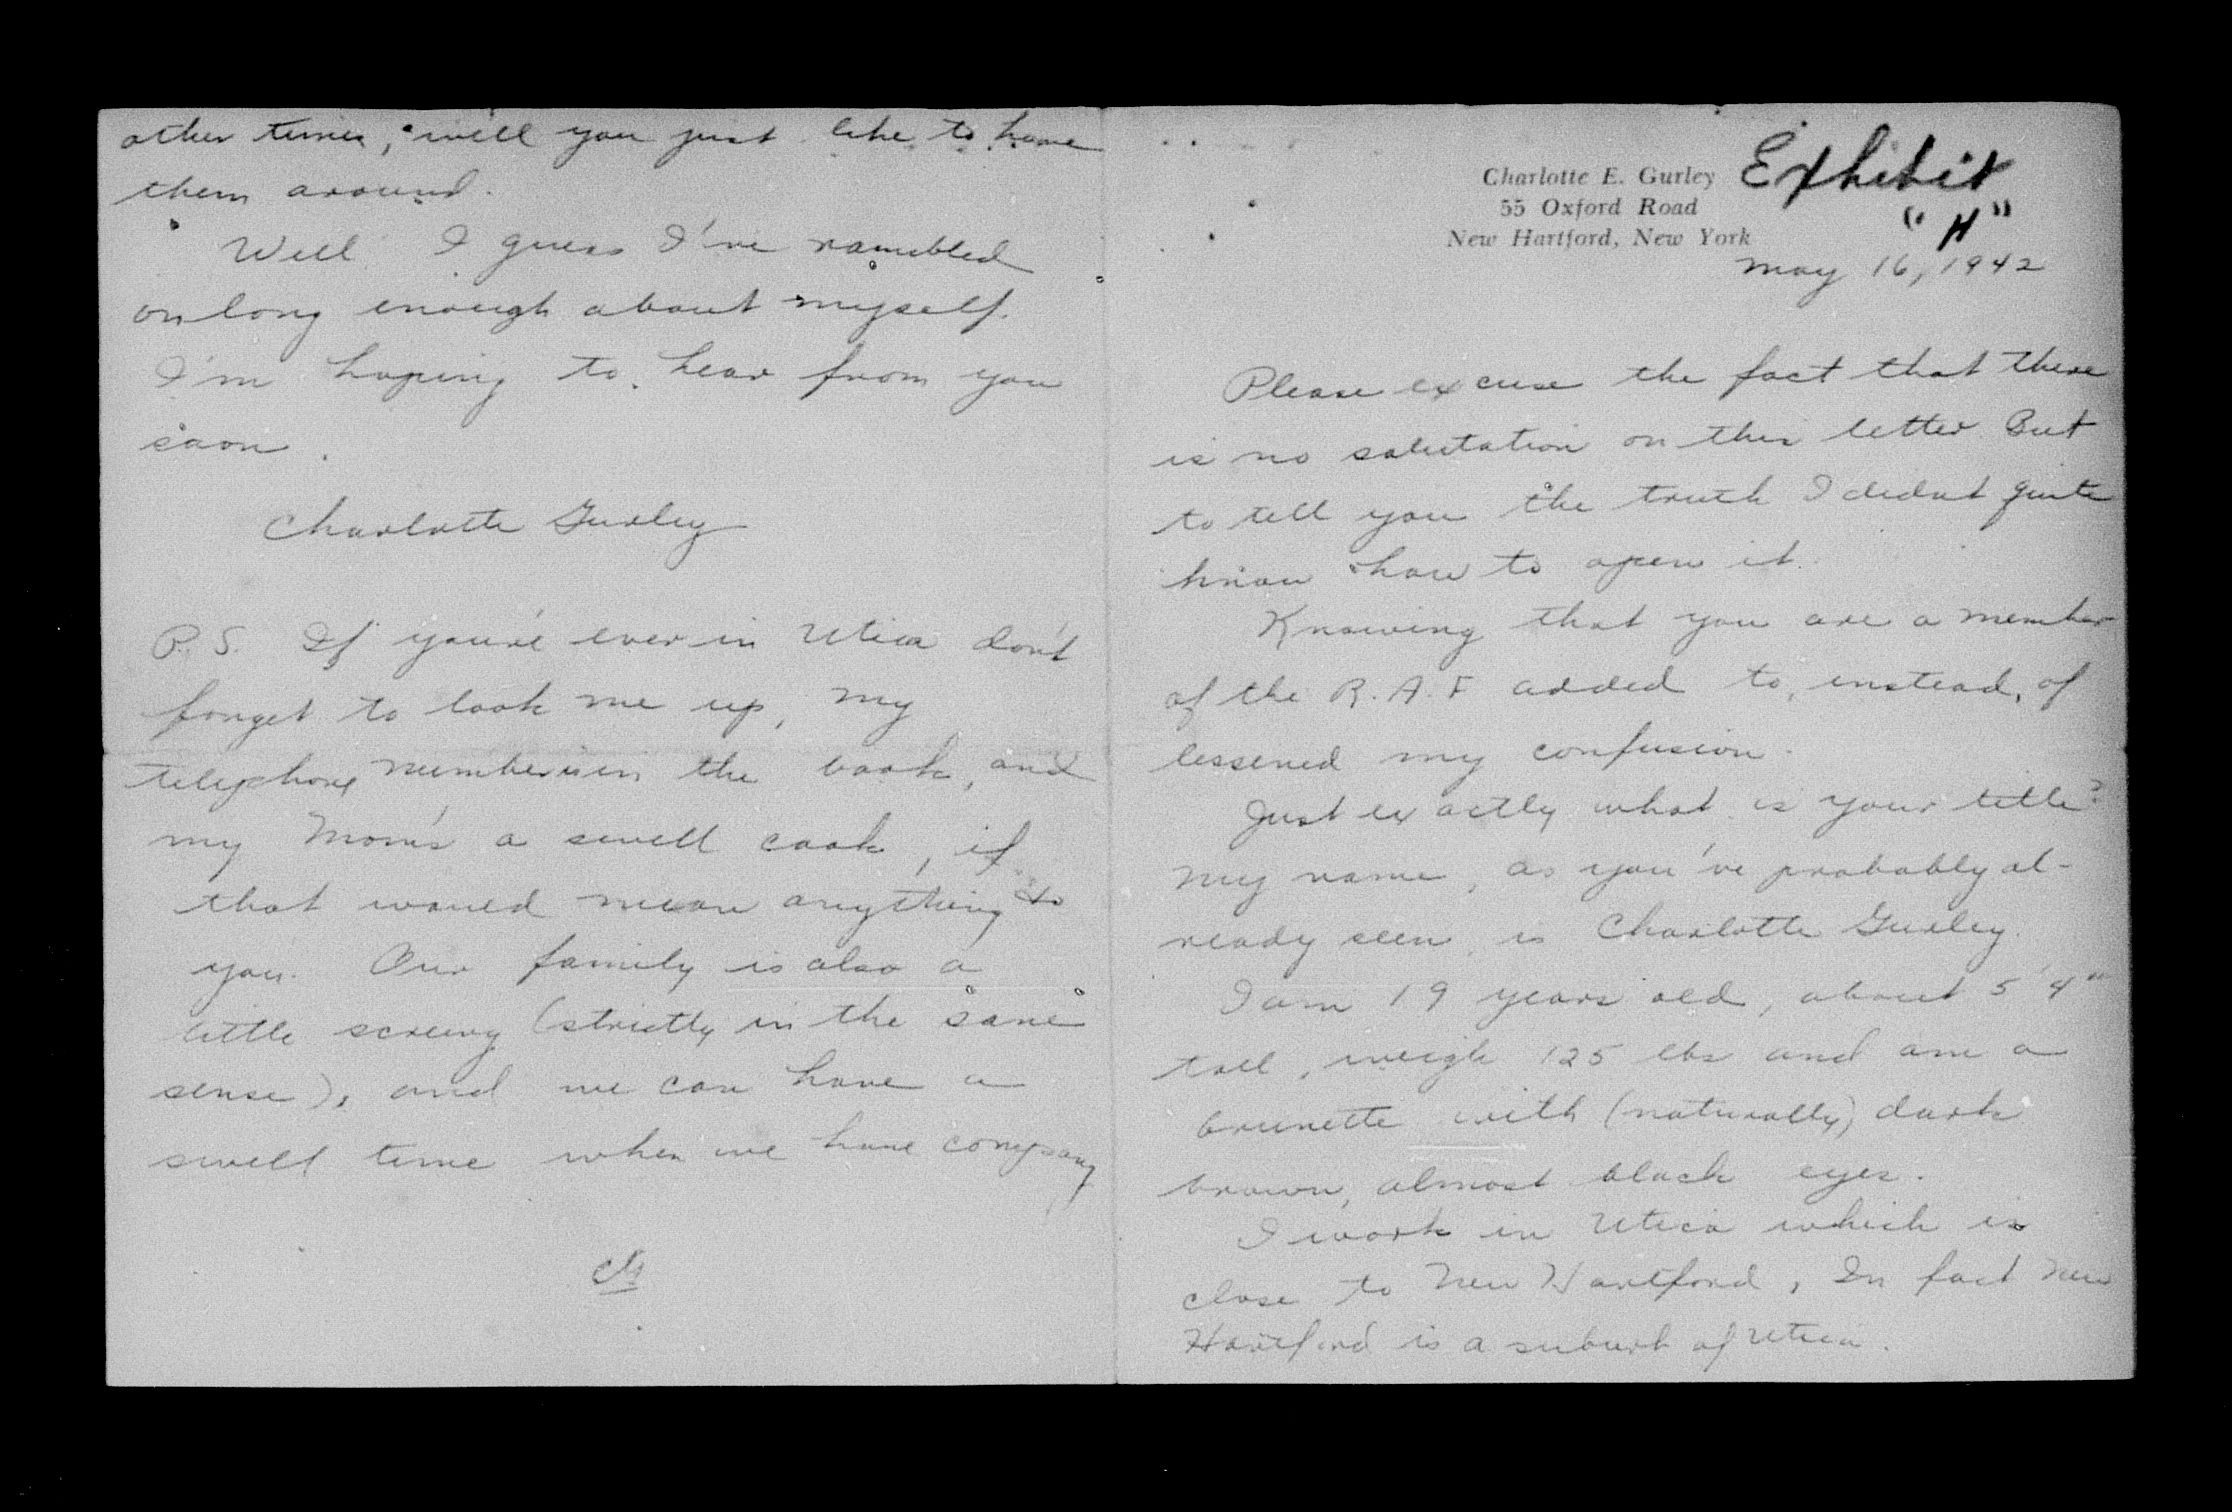 other times, well you just like to have
them around.
Well I guess I've rambled
on long enough about myself.
I'm hoping to hear from you
soon.
Charlotte Gurley
P.S. If you're ever in Utica don't
forget to look me up, my
telephone number is in the book, and
my Mom's a swell cook, if
that would mean anything to
you. Our family is also a
little screwy (strictly in the sane
sense), and we can have a
swell time when we have company
Charlotte E. Gurley
55 Oxford Road
New Hartford, New York
Exhibit
"H"
May 16, 1942
Please excuse the fact that there
is no salutation on this letter But
to tell you the truth I didn't quite
know how to open it.
Knowing that you are a member
of the R.A.F added to, instead, of
lessened my confusion.
Just exactly what is your title?
My name, as you've probably al-
ready seen, is Charlotte Gurley.
I am 19 years old, about 5'4"
tall, weigh 125 lbs and am a
brunette with (naturally) dark
brown, almost black eyes.
I work in Utica which is
close to New Hartford, In fact New
Hartford is a suburb of Utica.